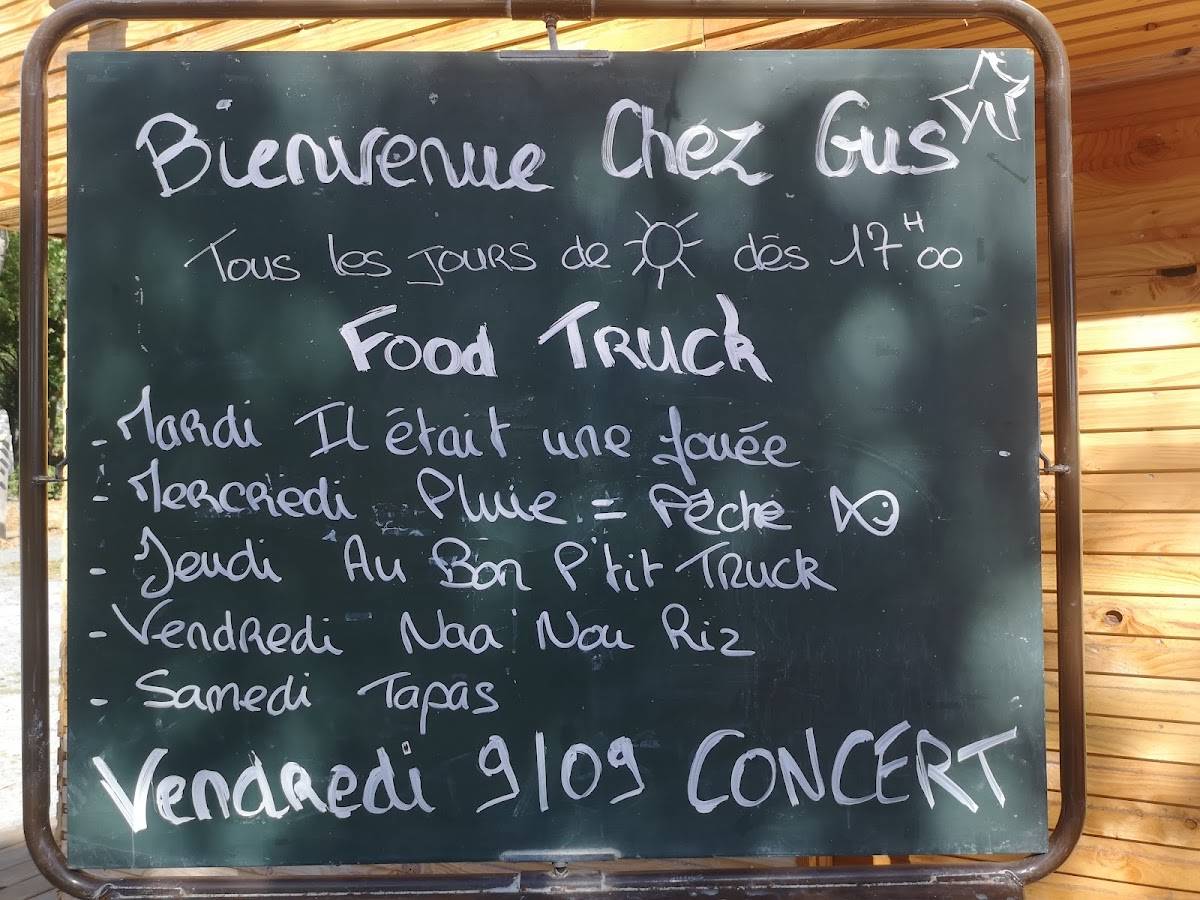 Bienvenue Chez Gus
Tous les jours de dès 17H00
Food Truck
- Mardi Il était une fouée
- Mercredi Pluie = Pêche
- Jeudi Au Bon P'tit Truck
- Vendredi Naa' Nou Riz
- Samedi Tapas
Vendredi 9/09 CONCERT